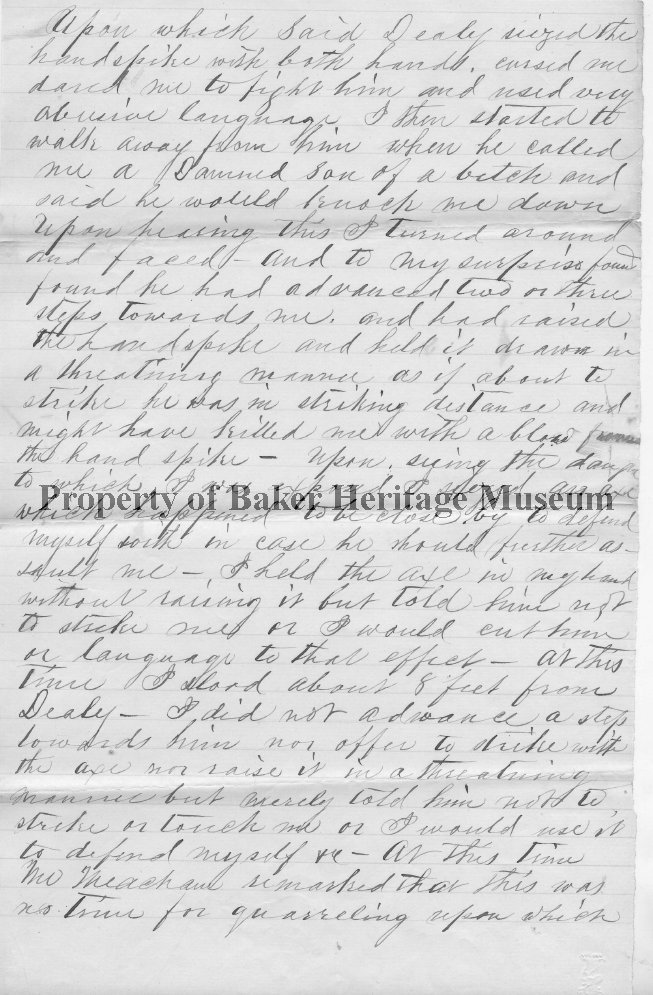 Upon which Said Dealy siezed the
handspike with both hands. cursed me
dared me to fight him and used very
abusive language I then started to
walk away from him when he called
me a Damned Son of a bitch and
said he would knock me down
Upon hearing this I turned around
and faced - and to my surprise found
found he had advanced two or three
steps towards me. and had raised
the handspike and held it drawn in
a threatning manner as if about to
strike he was in striking distance and
might have killed me with a blow from
the hand spike - Upon seeing the danger
to which I was I seized an axe
Property of Baker Heritage Museum
which happened to be close by to defend
myself with in case he should further as-
sault me - I held the axe in my hand
without raising it but told him not
to strike me or I would cut him
or language to that effect - At this
time I stood about 8 feet from
Dealy - I did not advance a step
towards him nor offer to strike with
the axe nor raise it in a threatning
manner but merely told him not to
strike or touch me or I would use it
to defend myself &c - At this time
Mr Meacham remarked that this was
no time for quarreling upon which